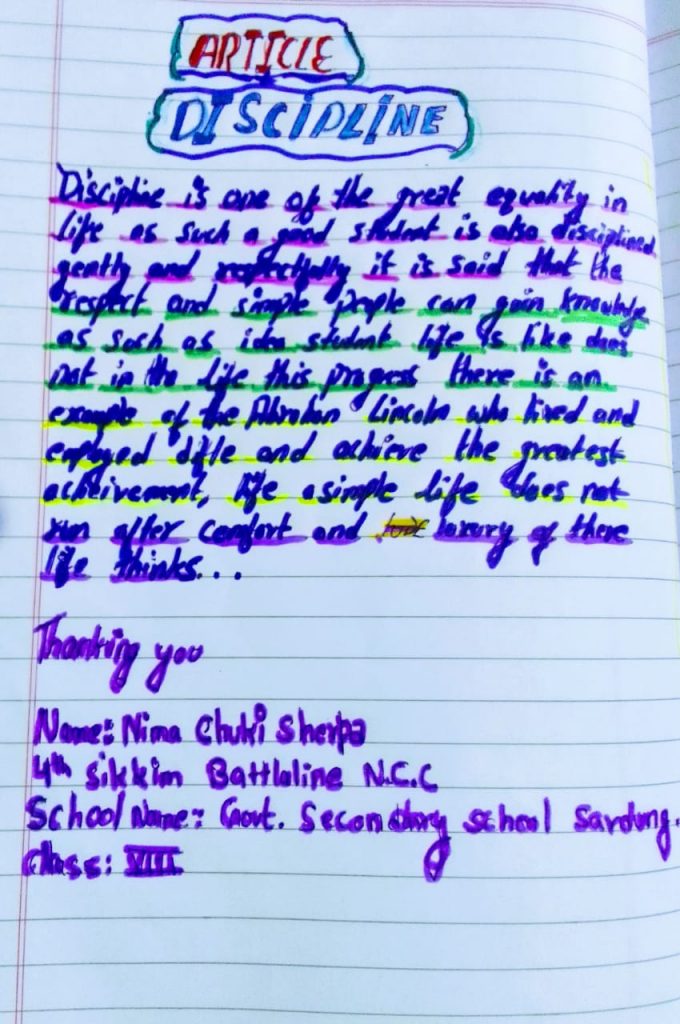 ARTICLE
DISCIPLINE
Discipline is one of the great equality in
life as such a good student is also disciplined
gently and respectfully it is said that the
respect and simple people can gain knowledge
as such as idea student life is like does
not in the life this progress there is an
example of the Abrahan Lincoln who lived and
employed difle and achieve the greatest
acheivement, life asimple life does not
run after comfort and luxury of there
life thinks...
Thanking you
Name:- Nima Chuki Sherpa
4th Sikkim Battlaline N.C.C
School Name:- Govt. Secondary school Sardung.
Class: VIII